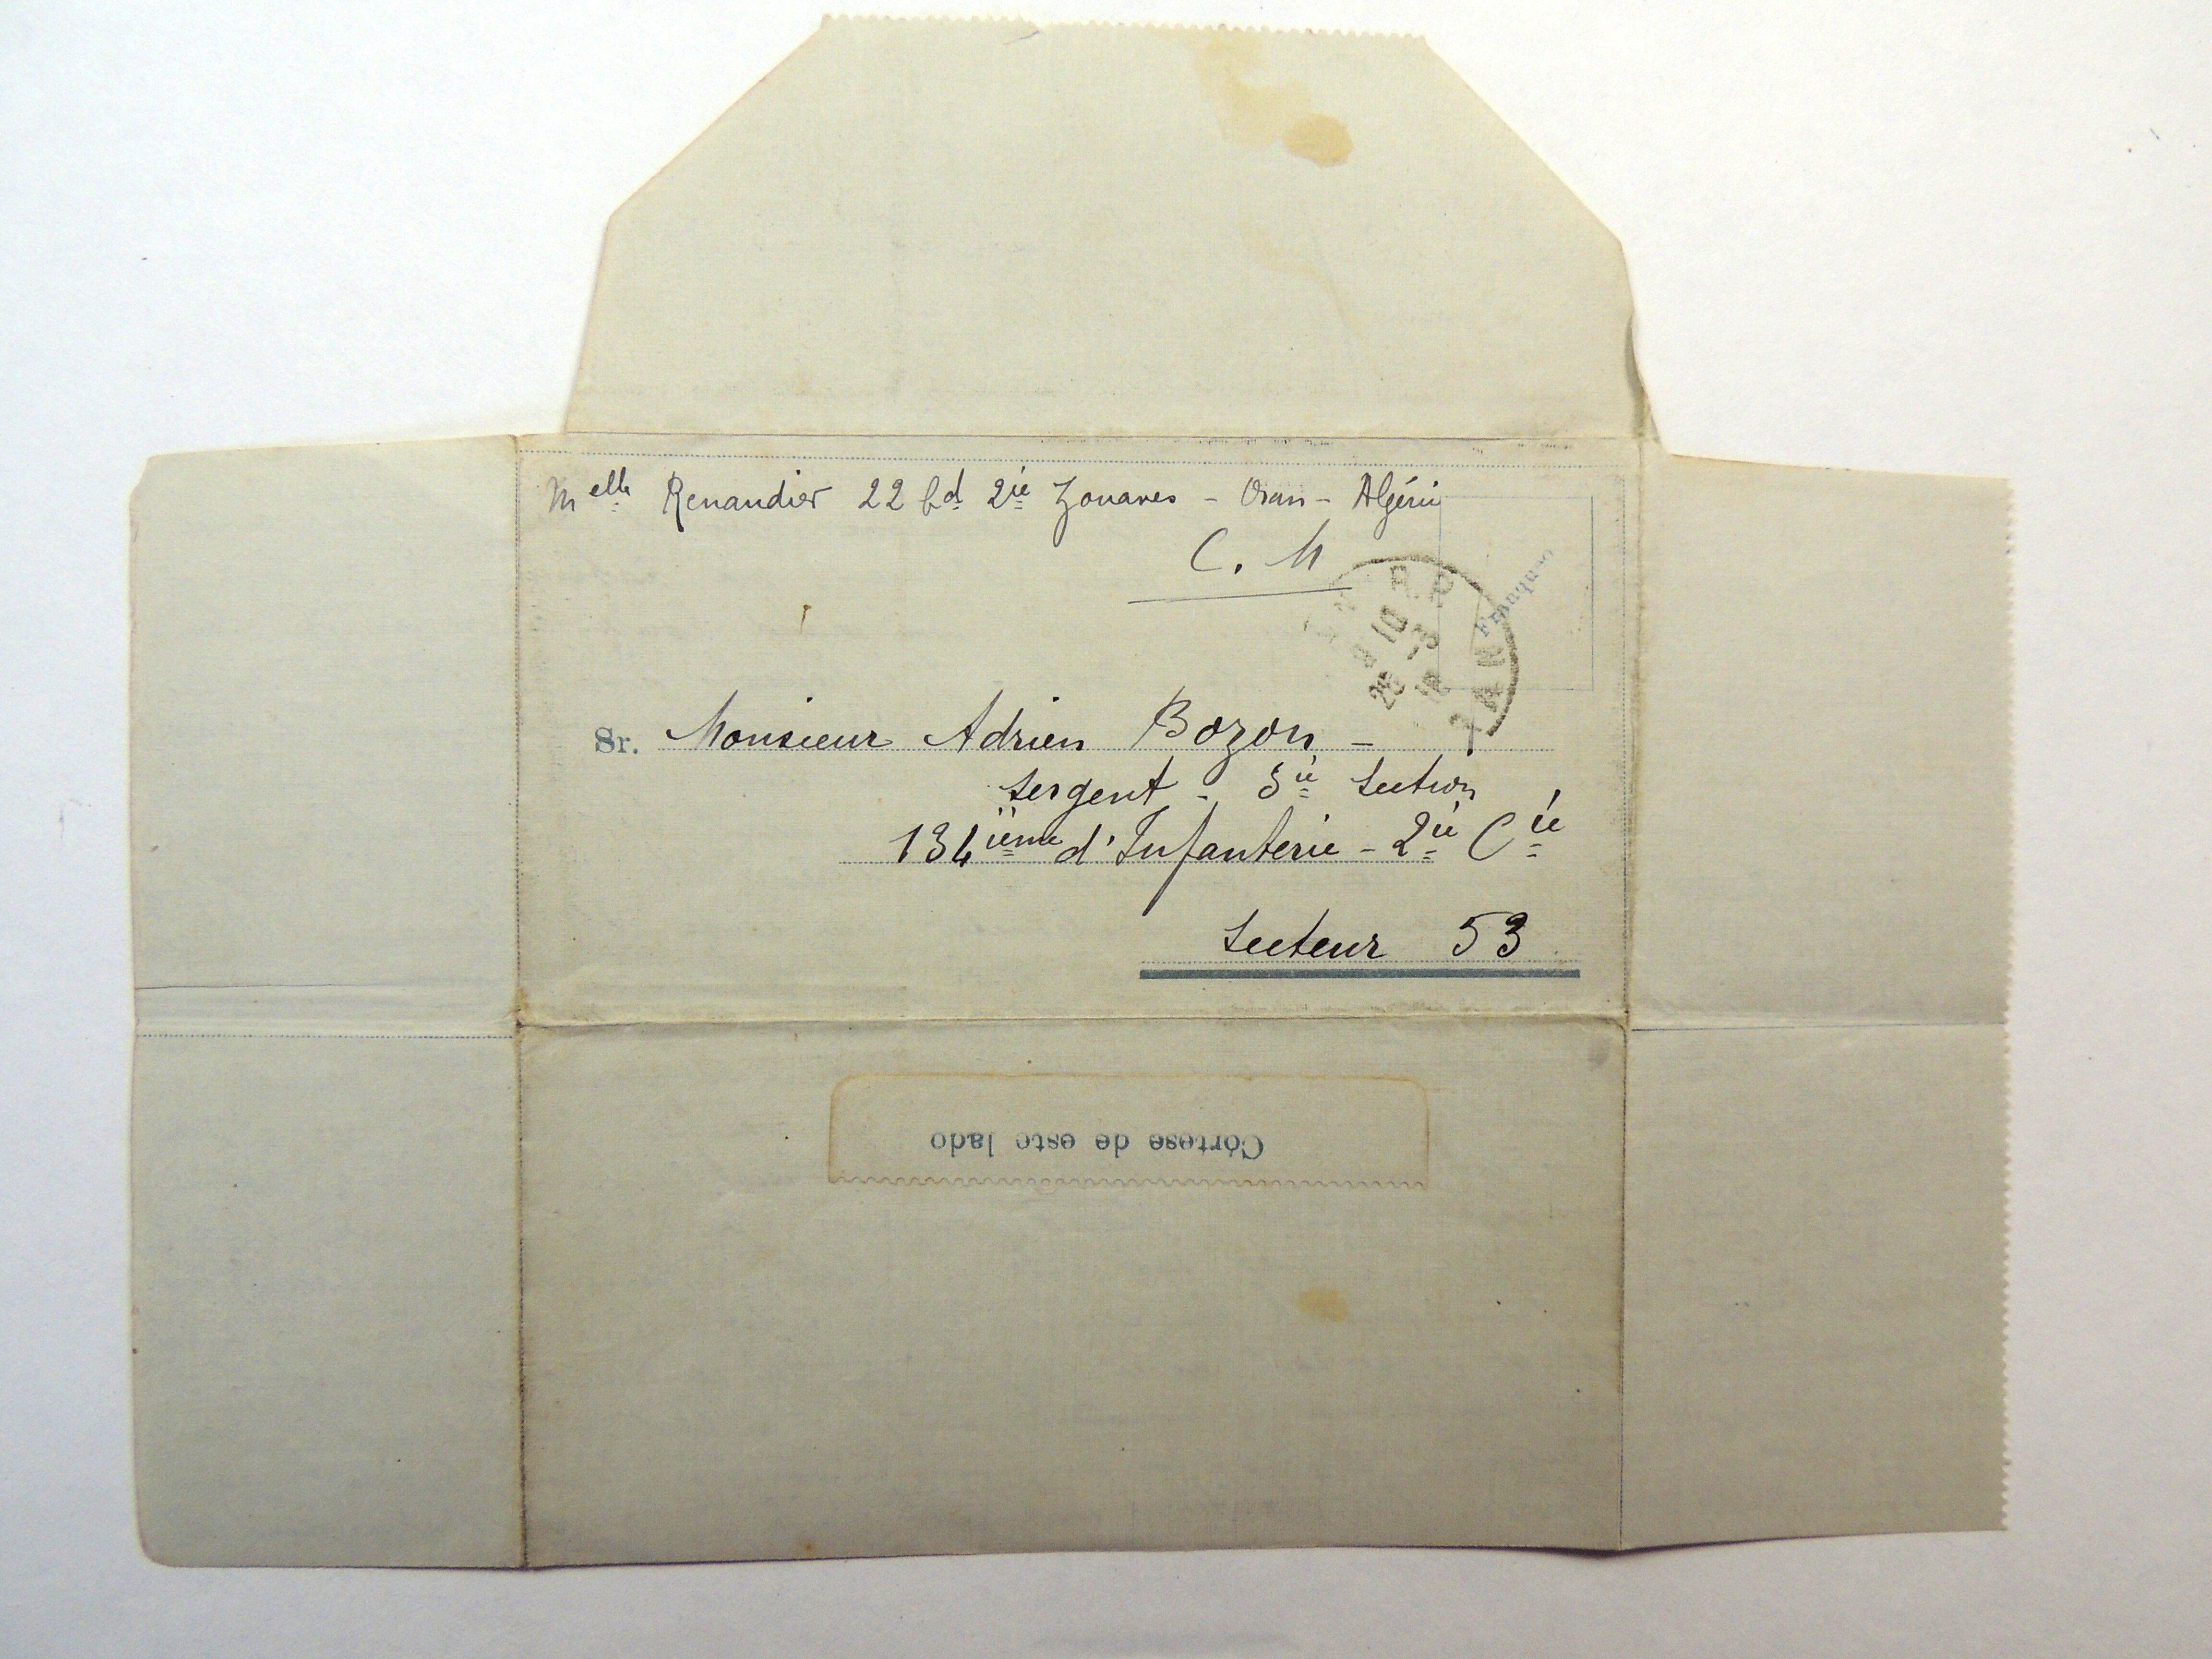 Melle Renaudier 22 bd 2ie Zouaves - Oran - Algérie
C. M
ORAN R.P
10
25 -3
Franqueo
Sr. Monsieur Adrien Bozon -
Sergent - 3ie Section
134ième d'Infanterie - 2ie Cie
Secteur 53
Córtese de este lado